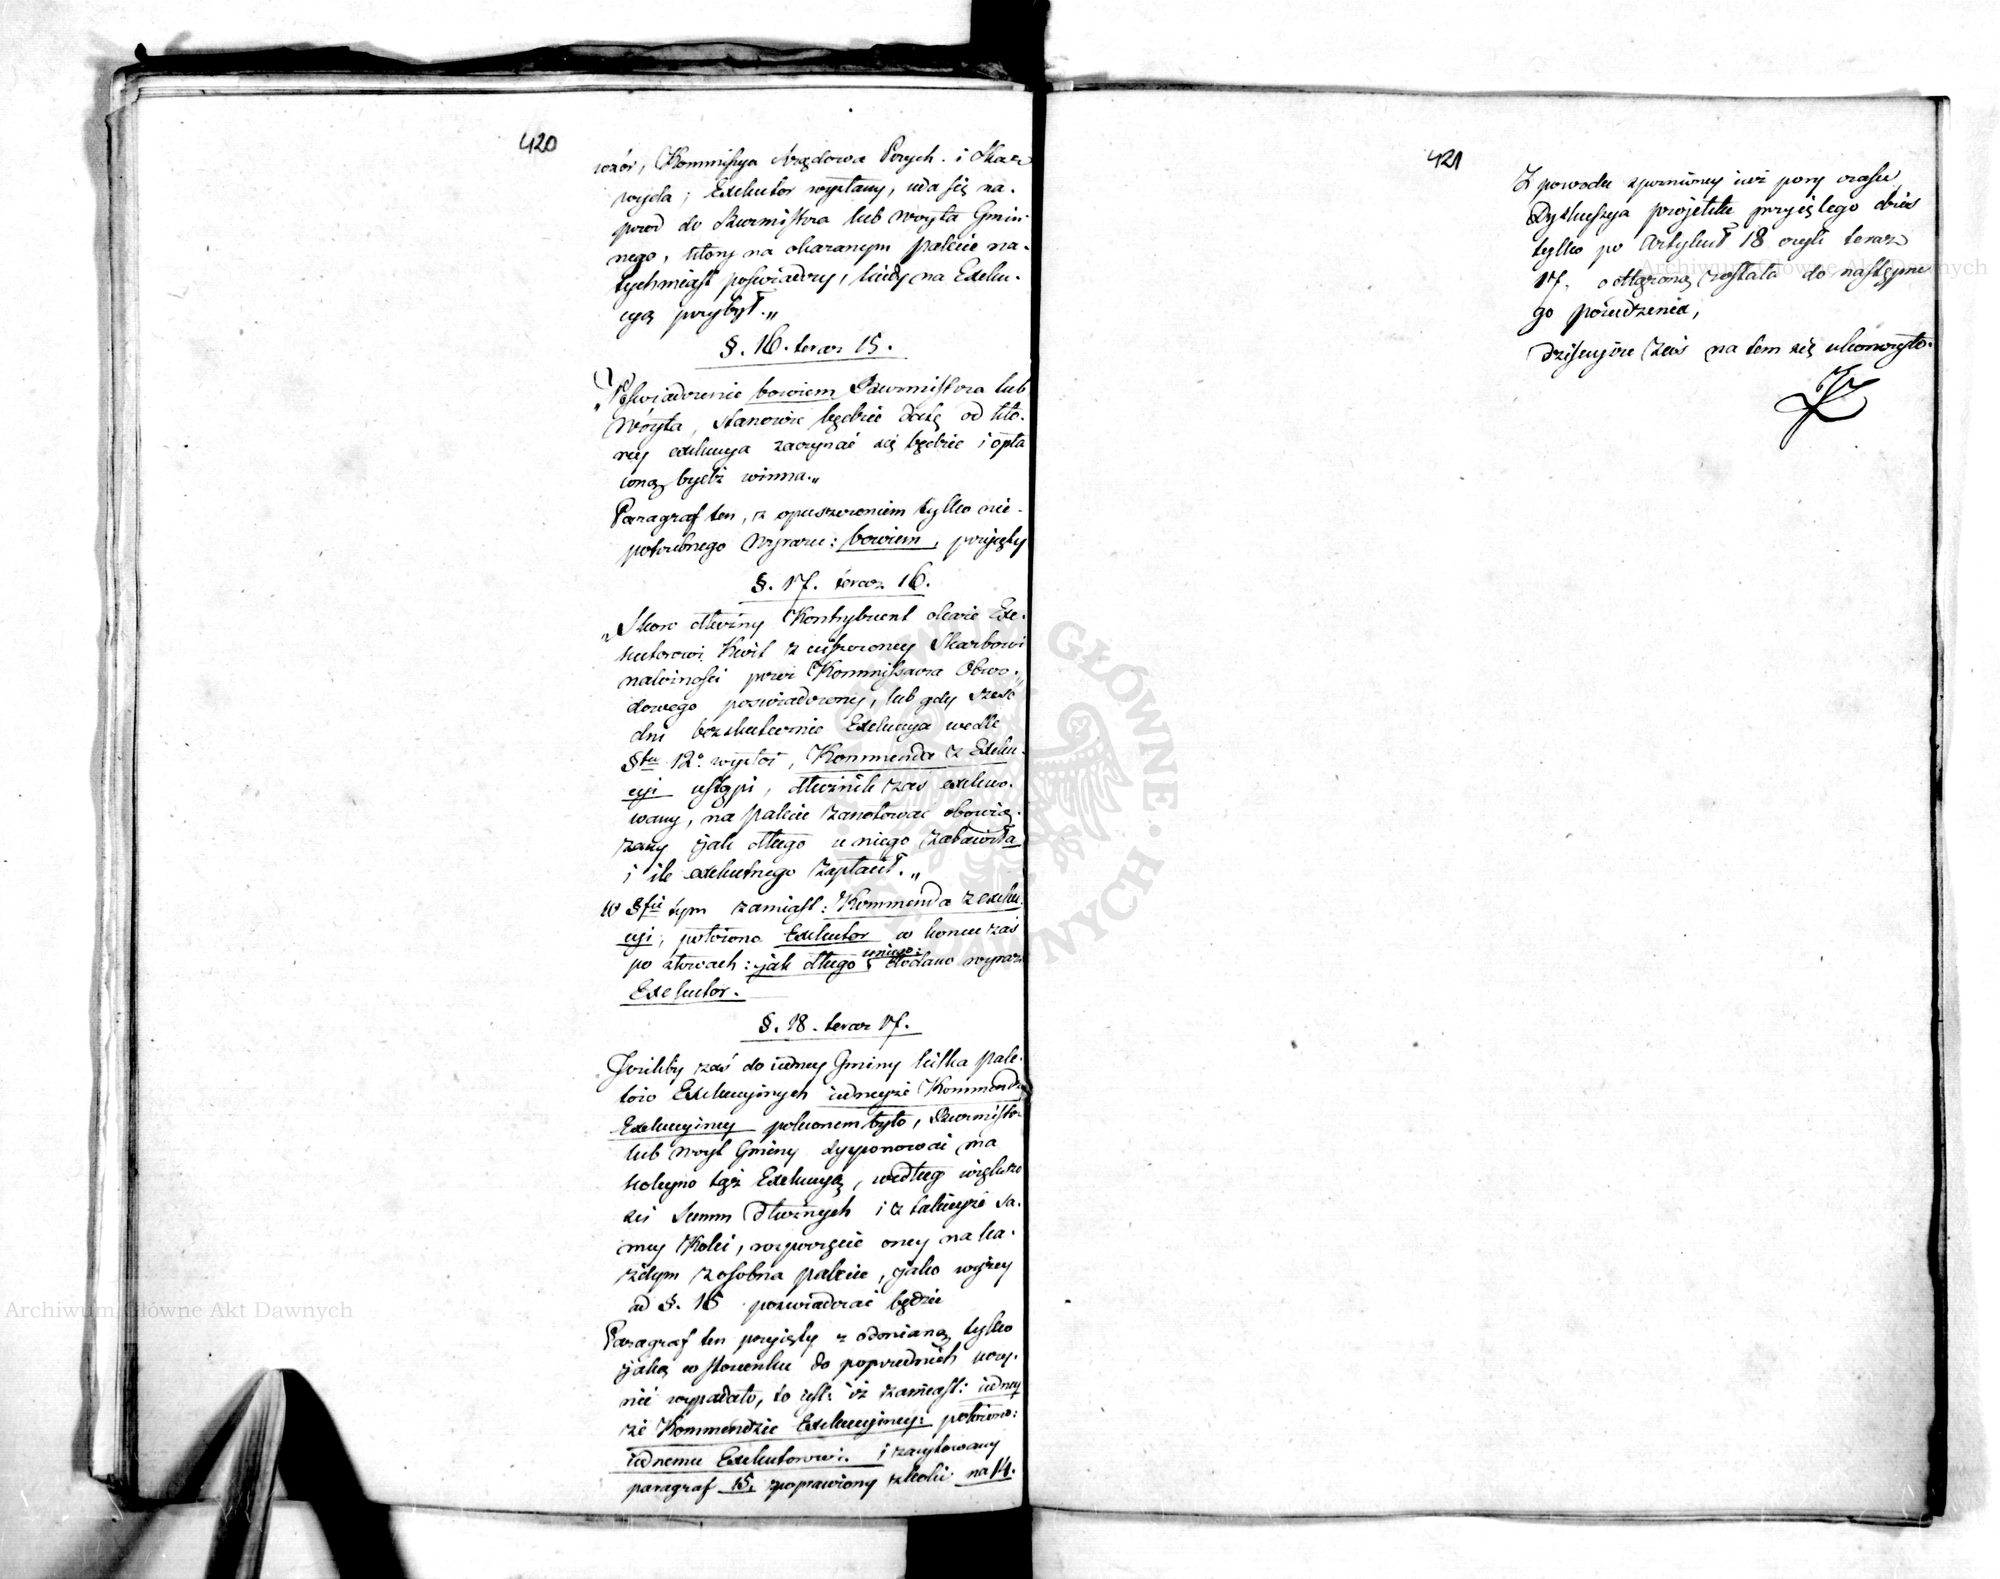 420
wzór, Kommissya Rządowa Przych. i Skarb
wyda; Exekutor wysłany, uda się na-
przód do Burmistrza lub Woyta Gmin-
nego, który na okazanym palecie na-
tychmiast poświadczy, kiedy na Exeku-
cyą przybył.„
§. 16. teraz 15.
„Poświadczenie bowiem Burmistrza lub
Wóyta, stanowić będzie datę od któ-
rey exekucya zaczynać się będzie i opła
coną bydź winna.„
Paragraf ten, z opuszczeniem tylko nie-
potrzebnego wyrazu: bowiem, przyięty
§. 17. teraz 16.
„Skoro dłużny Kontrybuent okaże Exe-
kutorowi Kwit z uiszczoney Skarbowi
należności przez Kommissarza Obwo-
dowego poświadczony, lub gdy sześć
dni bezskutecznie Exekucya wedle
§fu 12o wyżey, Kommenda z Exeku-
cyi ustąpi, dłużnik zaś exekwo-
wany, na palecie zanotować obowią-
zany jak długo u niego zabawiła
i ile exekutnego zapłacił.„
W §fie tym zamiast: Kommenda z exeku-
cyi, położono Exekutor w końcu zaś
po słowach: jak długo u niego: dodano wyraz
Exekutor.
§. 18. teraz 17.
Jeżeliby zaś do iedney Gminy kilka pale-
tów Exekucyinych iedneyże Kommendzie
Exekucyiney poleconem było, Burmistrz
lub Woyt Gminy dysponować ma
koleyno tęż Exekucyą, według większo
ści Summ dłużnych i z takieyże sa-
mey Kolei, rozpoczęcie oney na ka-
żdym z osobna palecie, jako wyżey
ad §. 15 poświadczać będzie
Paragraf ten przyięty z odmianą tylko
jaką w stosunku do poprzednich uczy-
nić wypadało, to iest: iż zamiast: iedney
że Kommendzie Exekucyiney: położono:
iednemu Exekutorowi. i zacytowany
paragraf 15. poprawiony z kolei na 14.
421
Z powodu spóźnioney iuż pory czasu,
Dyskussya projektu przyiętego dziś
tylko po Artykuł 18 czyli teraz
17. odłożoną została do następne
go posiedzenia,
Dzisieysze zaś na tem się ukończyło.
Archiwum Główne Akt Dawnych
Archiwum Główne Akt Dawnych